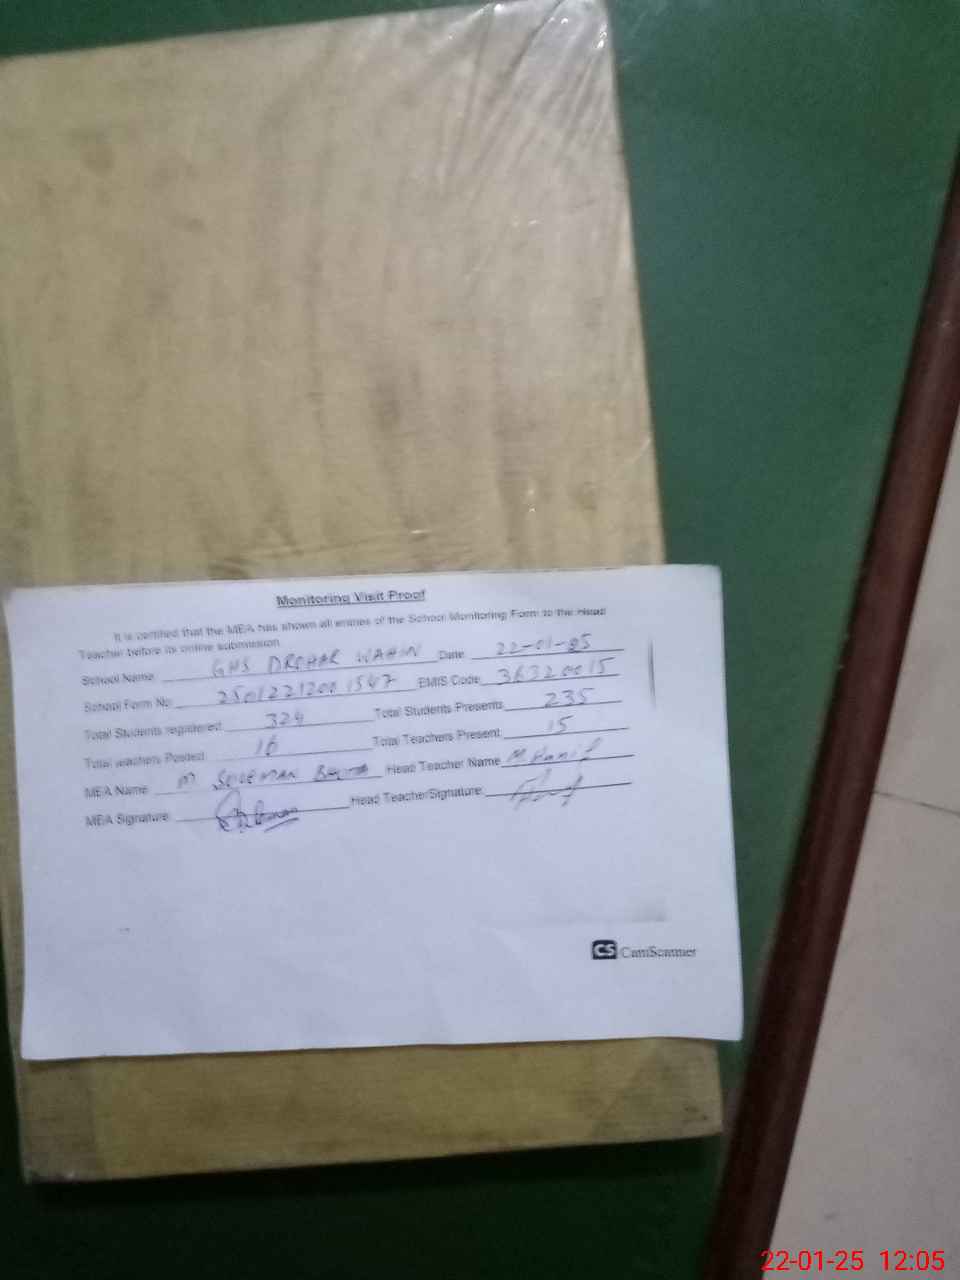 Monitoring Visit Proof
It is certified that the MEA has shown all entries of the School Monitoring Form to the Head
Teacher before its online submission
School Name GHS DROHAR WAHIN Date 22-01-25
School Form No EMIS Code 36320015
Total Students registered 324 Total Students Presents 235
Total teachers Posted 16 Total Teachers Present 15
MEA Name M SULEMAN Head Teacher Name M. Hanif
MEA Signature Head Teacher Signature
CS CamScanner
22-01-25 12:05